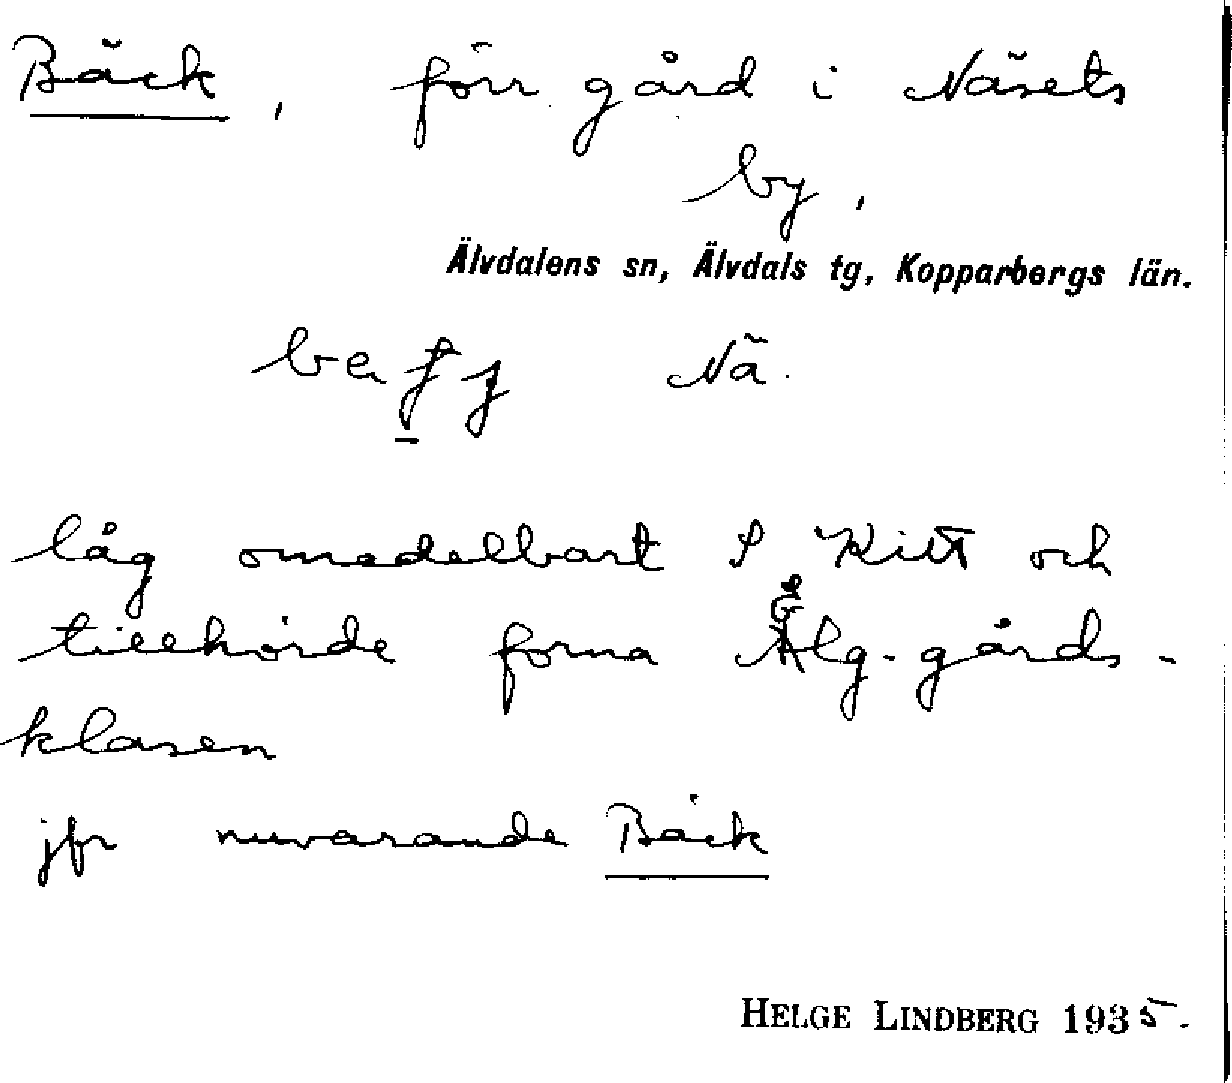 Bäck, förr gård i Näsets
by,
Älvdalens sn, Älvdals tg, Kopparbergs län.
Nä.
låg omedelbart S Kitt och
tillhörde forna Älg-gårds-
klasen
jfr nuvarande Bäck
HELGE LINDBERG 1935.